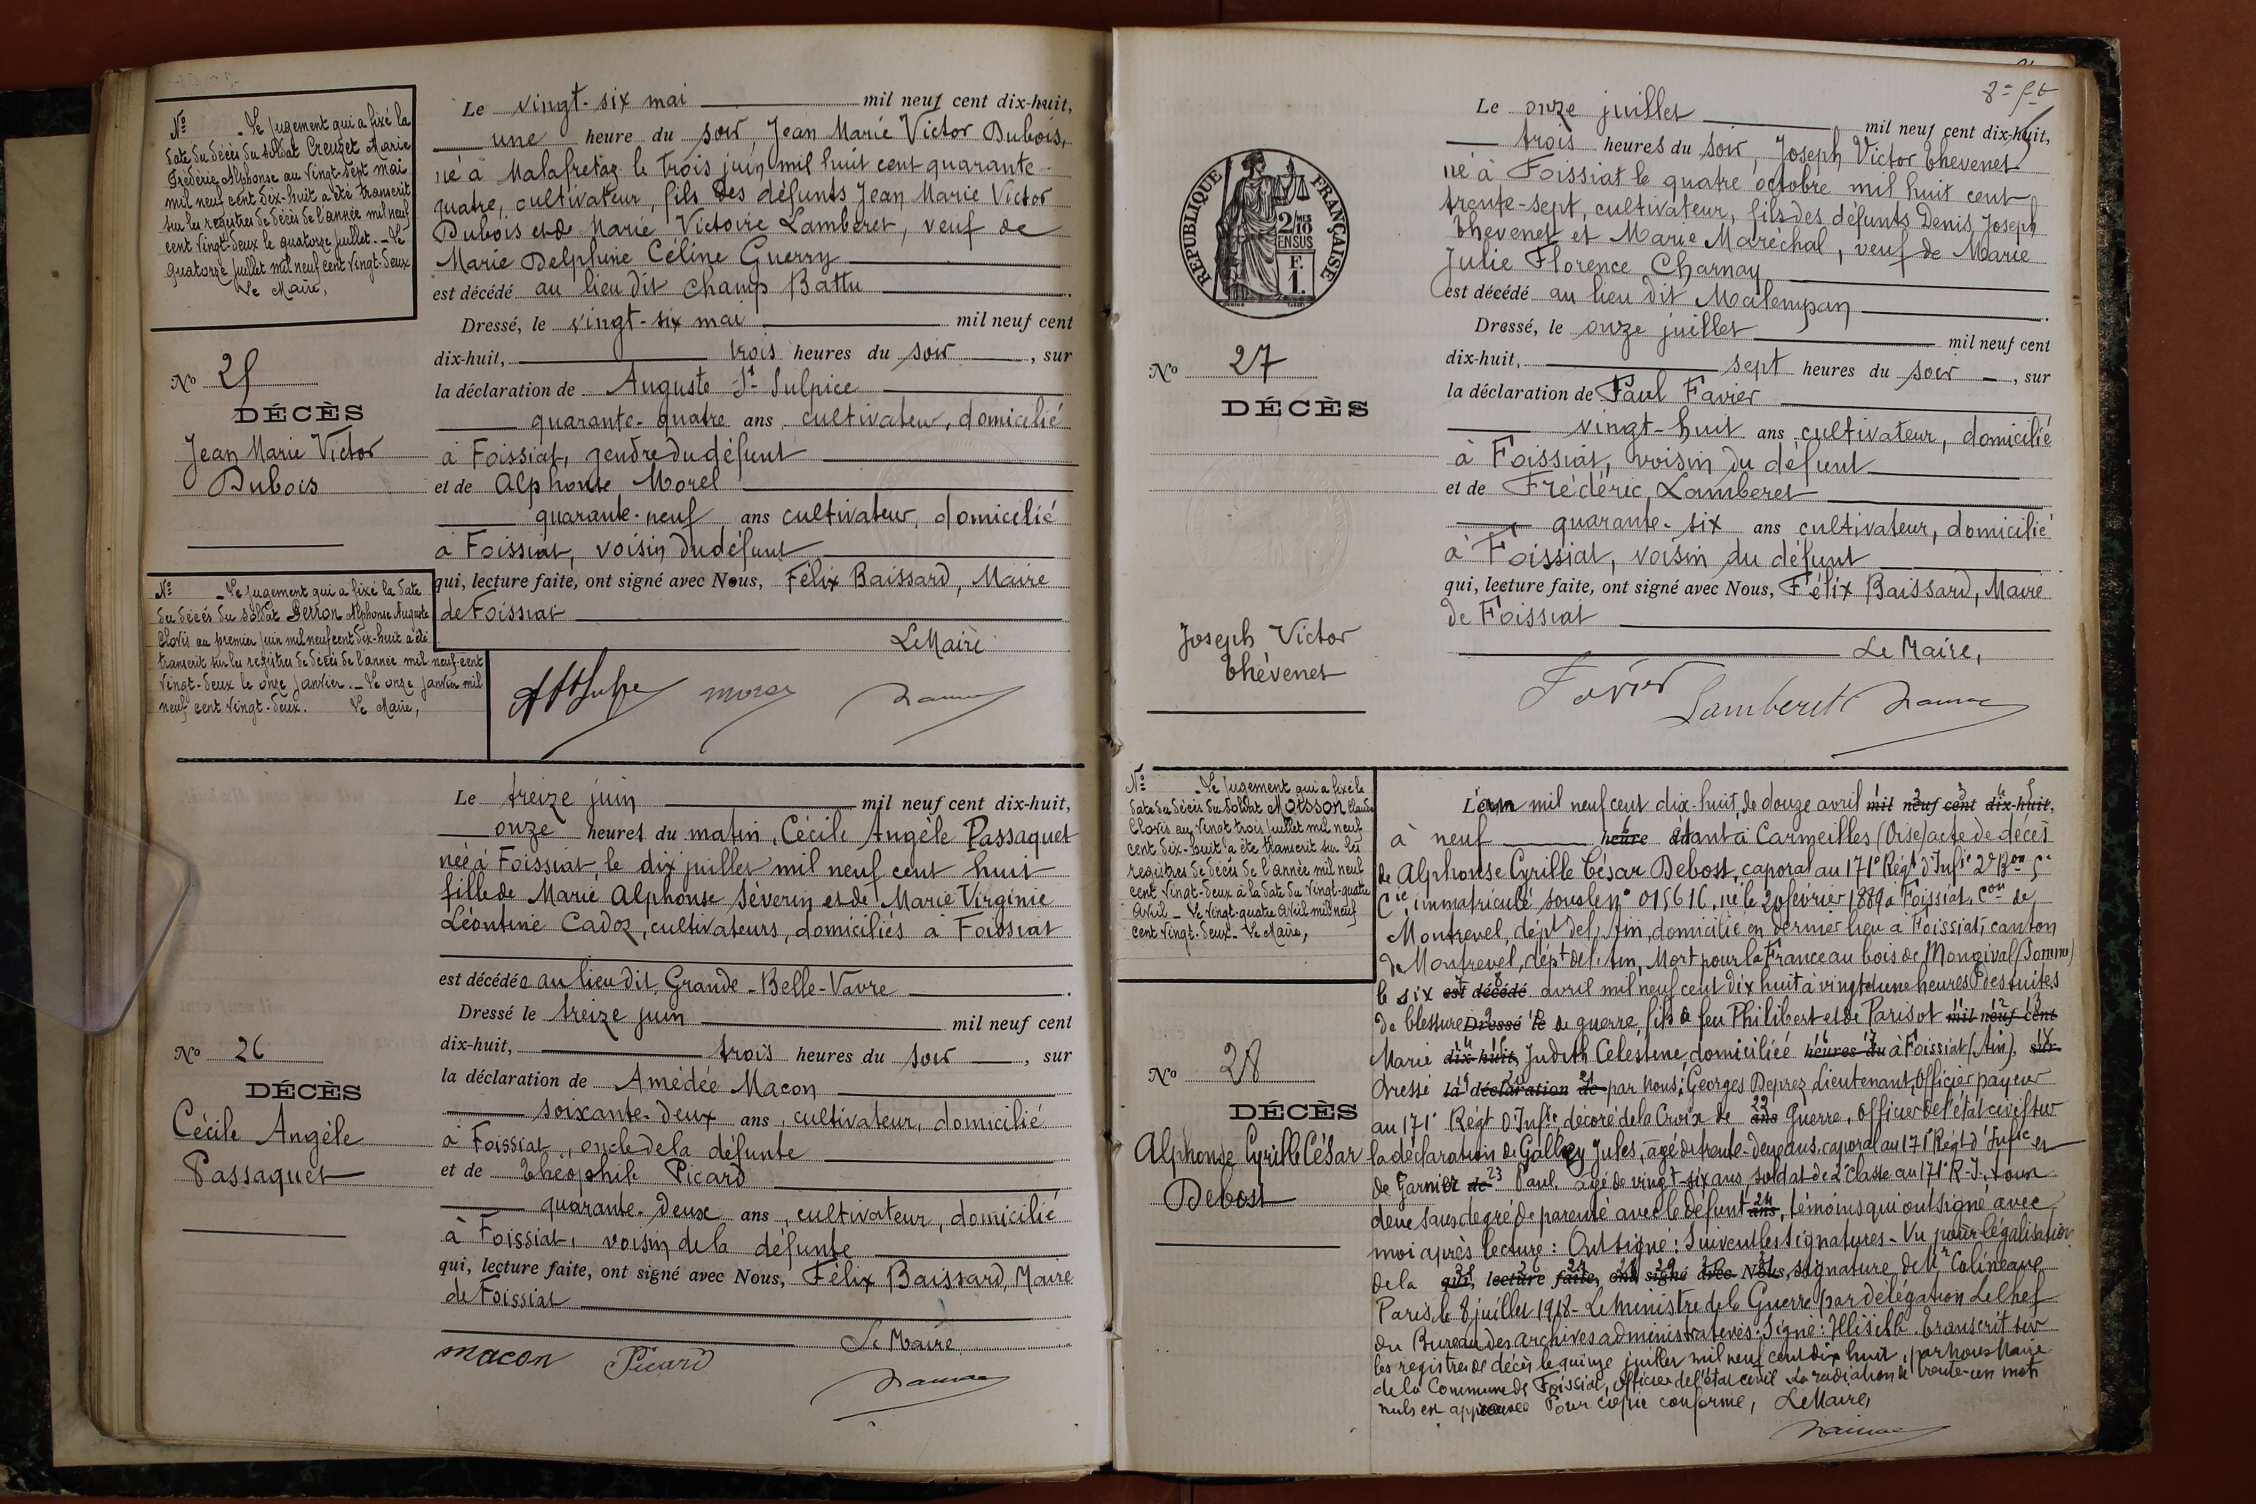 No _ Le jugement qui a fixé la
date du décès du soldat Creuzet Marie
Frédéric Alphonse au vingt-sept mai
mil neuf cent dix-huit a été transcrit
sur les registres de décès de l'année mil neuf
cent vingt-deux le quatorze juillet. - Le
quatorze juillet mil neuf cent vingt-deux
Le Maire,
No 25
DÉCÈS
Jean Marie Victor
Dubois
Le vingt-six mai mil neuf cent dix-huit,
une heure du soir Jean Marie Victor Dubois,
né à Malafretaz le trois juin mil huit cent quarante-
quatre, cultivateur, fils des défunts Jean Marie Victor
Dubois et de Marie Victoire Lamberet, veuf de
Marie Delphine Céline Guerry
est décédé au lieu dit Champ Battu
Dressé, le vingt-six mai mil neuf cent
dix-huit, trois heures du soir, sur
la déclaration de Auguste St Sulpice
quarante-quatre ans, cultivateur, domicilié
à Foissiat, gendre du défunt
et de Alphonse Morel
quarante-neuf ans cultivateur, domicilié
à Foissiat, voisin du défunt
qui, lecture faite, ont signé avec Nous, Félix Baissard, Maire
de Foissiat
Le Maire
No _ Le jugement qui a fixé la date
du décès du soldat Perron Alphonse Auguste
Clovis au premier juin mil neuf cent dix-huit a été
transcrit sur les registres de décès de l'année mil neuf-cent
vingt-deux le onze janvier. - Le onze janvier mil
neuf cent vingt-deux. Le Maire,
No 26
DÉCÈS
Cécile Angèle
Passaquet
Le treize juin mil neuf cent dix-huit,
onze heures du matin, Cécile Angèle Passaquet
née à Foissiat, le dix juillet mil neuf cent huit
fille de Marie Alphonse Séverin et de Marie Virginie
Léontine Cadoz, cultivateurs, domiciliés à Foissiat
est décédée au lieu dit Grande-Belle-Vavre
Dressé le treize juin mil neuf cent
dix-huit, trois heures du soir, sur
la déclaration de Amédée Macon
soixante-deux ans, cultivateur, domicilié
à Foissiat, oncle de la défunte
et de Théophile Picard
quarante-deux ans, cultivateur, domicilié
à Foissiat, voisin de la défunte
qui, lecture faite, ont signé avec Nous, Félix Baissard, Maire
de Foissiat
Le Maire
macon Picard
RÉPUBLIQUE FRANÇAISE
2/10
EN SUS
F.
1.
No 27
DÉCÈS
Joseph Victor
Thévenet
Le onze juillet mil neuf cent dix-huit,
trois heures du soir, Joseph Victor Thevenet
né à Foissiat le quatre octobre mil huit cent
trente-sept, cultivateur, fils des défunts Denis Joseph
Thevenet et Marie Maréchal, veuf de Marie
Julie Florence Charnay
est décédé au lieu dit Malempan
Dressé, le onze juillet mil neuf cent
dix-huit, sept heures du soir, sur
la déclaration de Paul Favier
vingt-huit ans cultivateur, domicilié
à Foissiat, voisin du défunt
et de Frédéric Lamberet
quarante-six ans cultivateur, domicilié
à Foissiat, voisin du défunt
qui, lecture faite, ont signé avec Nous, Félix Baissard, Maire
de Foissiat
Le Maire,
Favier Lamberet
No _ Le jugement qui a fixé la
date du décès du soldat Moisson Claude
Clovis au vingt trois juillet mil neuf
cent dix-huit a été transcrit sur les
registres de décès de l'année mil neuf
cent vingt-deux à la date du vingt-quatre
avril - Le vingt-quatre avril mil neuf
cent vingt-deux - Le Maire,
No 28
DÉCÈS
Alphonse Cyrille César
Debost
L'an mil neuf cent dix-huit, le douze avril mil neuf cent dix-huit,
à neuf heure étant à Carmeilles (Oise) acte de décès
de Alphonse Cyrille César Debost, caporal au 171e Régt d'Infie 2e Bon 5e
Cie, immatriculé sous le no 015616, né le 20 février 1889 à Foissiat, Con de
Montrevel, dépt de l'Ain, domicilié en dernier lieu à Foissiat, canton
de Montrevel, dépt de l'Ain, Mort pour la France au bois de Mongival (Somme)
le six est décédé avril mil neuf cent dix huit à vingt et une heures des suites
de blessure Dressé le de guerre, fils de feu Philibert et de Parisot mil neuf cent
Marie dix-huit, Judith Célestine, domiciliée heures du à Foissiat (Ain). sur
Dressé la déclaration de par nous, Georges Deprez, Lieutenant, Officier payeur
au 171e Régt d'Infie, décoré de la Croix de ans Guerre, officier de l'état civil sur
la déclaration de Galley Jules, âgé de trente-deux ans, caporal au 171e Régt d'Infie et
de Garnier de Paul, âgé de vingt-six ans, soldat de 2e classe au 171e R.I. tous
deux sans degré de parenté avec le défunt ans, témoins qui ont signé avec
moi après lecture: Ont signé: Suivent les signatures - Vu pour légalisation
de la qui, lecture faite, ont signé avec Nous, signature de Mr Colineaux
Paris, le 8 juillet 1918 - Le Ministre de la Guerre, par délégation Le Chef
du Bureau des archives administratives: Signé: Transcrit sur
les registres de décès le quinze juillet mil neuf cent dix huit, par nous Maire
de la Commune de Foissiat, officier de l'état civil La radiation de trente-un mots
nuls est approuvée Pour copie conforme, Le Maire,